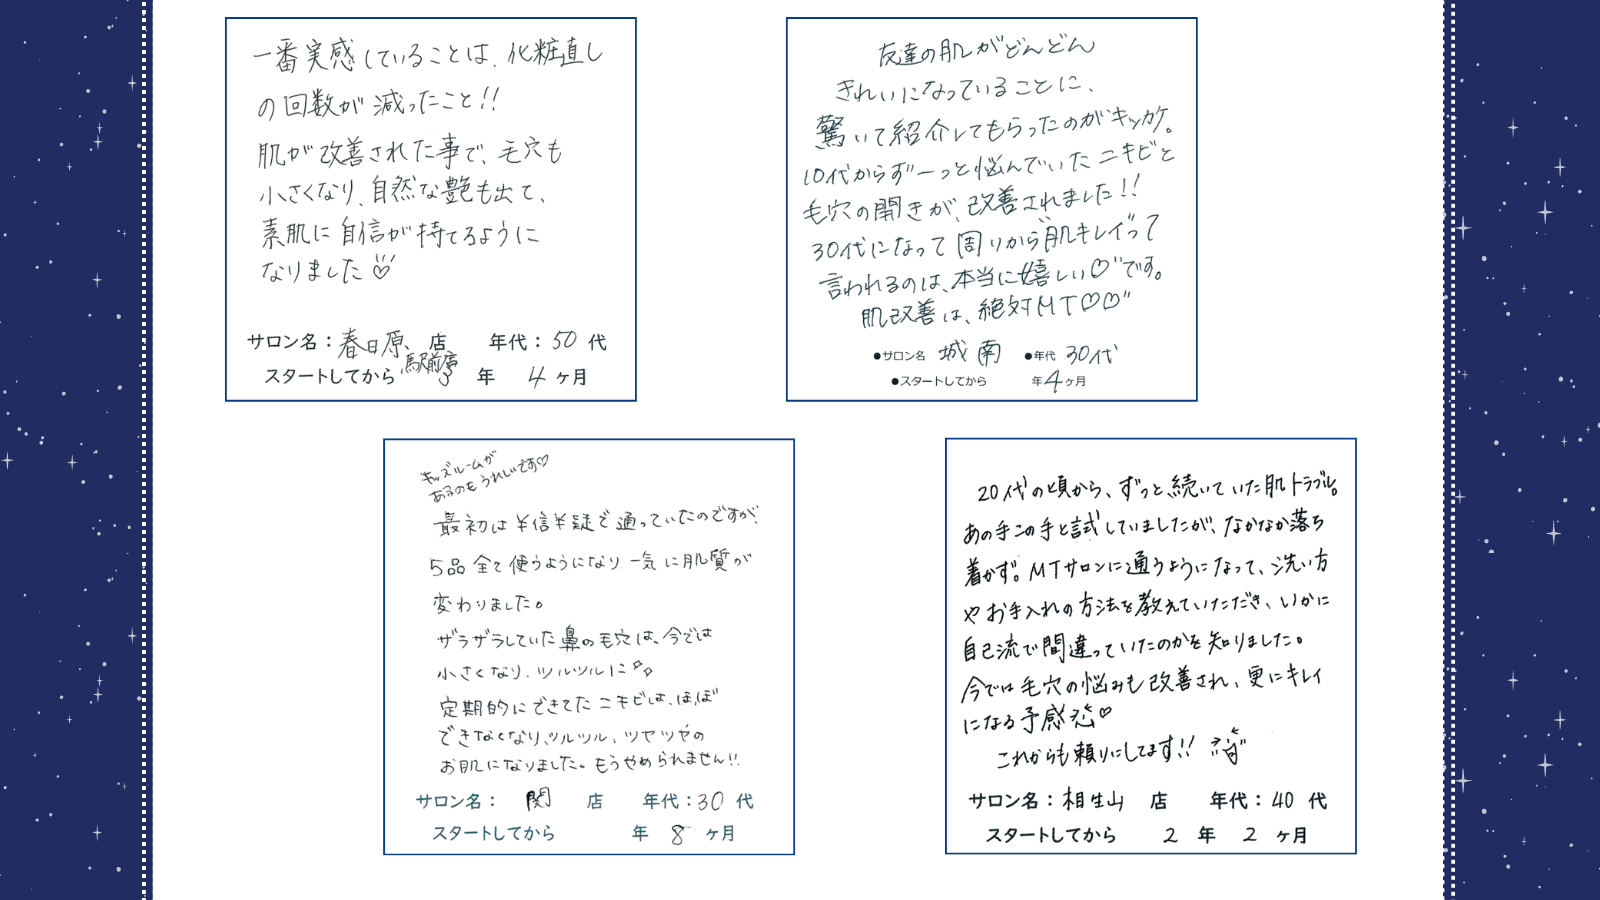 一番実感していることは、化粧直し
の回数が減ったこと!!
肌が改善された事で、毛穴も
小さくなり、自然な艶も出て、
素肌に自信が持てるように
なりました♡
サロン名：春日原、店 年代：50 代
駅前店
スタートしてから 3 年 4 ヶ月
友達の肌がどんどん
きれいになっていることに、
驚いて紹介してもらったのがキッカケ。
10代からずーっと悩んでいたニキビと
毛穴の開きが、改善されました!!
30代になって周りから"肌キレイ"って
言われるのは、本当に嬉しい♡"です。
肌改善は、絶対MT♡♡"
●サロン名 城南 ●年代 30代
●スタートしてから 年4ヶ月
キッズルームが
あるのもうれしいです♡
最初は半信半疑で通っていたのですが、
5品全て使うようになり、一気に肌質が
変わりました。
ザラザラしていた鼻の毛穴は、今では
小さくなり、ツルツルに
定期的にできてたニキビは、ほぼ
できなくなり、ツルツル、ツヤツヤの
お肌になりました。もうやめられません!!
サロン名： 関 店 年代：30 代
スタートしてから 年 8 ヶ月
20代の頃から、ずっと続いていた肌トラブル。
あの手この手と試していましたが、なかなか落ち
着かず。MTサロンに通うようになって、洗い方
やお手入れの方法を教えていただき、いかに
自己流で間違っていたのかを知りました。
今では毛穴の悩みも改善され、更にキレイ
になる予感♡
これからも頼りにしてます!!
サロン名：相生山 店 年代：40 代
スタートしてから 2 年 2 ヶ月